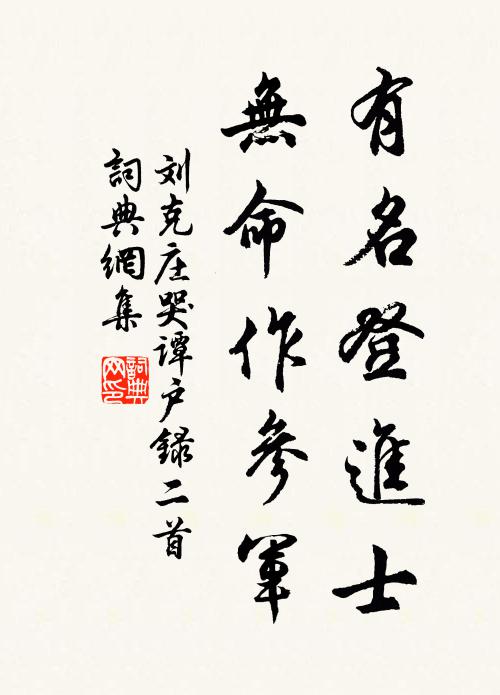 有名登進士
無命作參軍
刘克庄哭谭户録二首
詞典網集
詞典网印